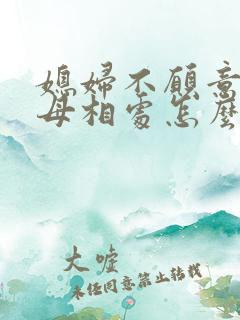 媳婦不願意
母相處怎麼
大噓
未经同意禁止转载